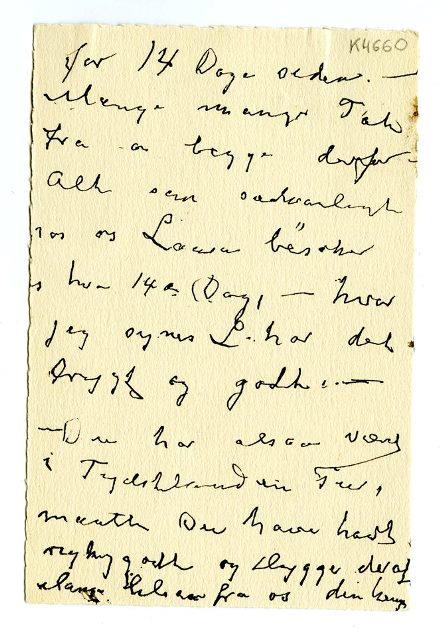 K4660
for 14 Dage siden. —
Mange mange Tak
fra os begge derfor
Alt som sædvanligt
hos os Laura besøker
hver 14de Dag, — hvor
jeg synes L. har det
trygt og godt. —
— Du har altsaa været
i Tydskland en Tur,
maatte Du have havt
rigtig godt og Hygge deraf
Mange Hilsen fra os din